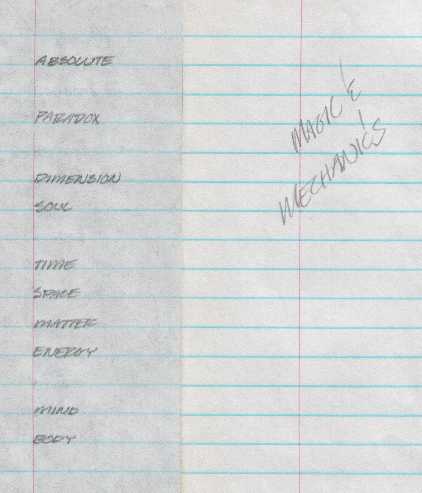 ABSOLUTE
PARADOX
DIMENSION
SOUL
TIME
SPACE
MATTER
ENERGY
MIND
BODY
MAGIC &
MECHANICS